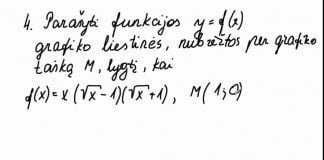 4. Parašyti funkcijos y=f(x)
grafiko liestinės, nubrėžtos per grafiko
tašką M, lygtį, kai
f(x)=x(√x-1)(√x+1), M(1;0)